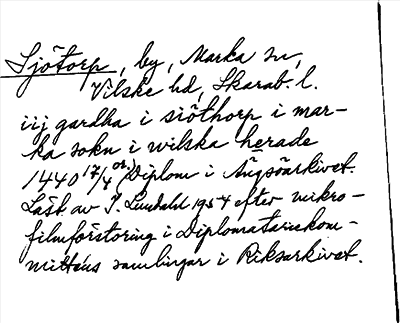 Sjötorp, by, Marka sn,
Vilske hd, Skarab. l.
iij gardha i siöthorp i mar-
ka sokn i wilska herade
1440 17/4 or. Diplom i Ängsöarkivet.
Läst av J. Liedgren 1954 efter mikro-
filmförstoring i Diplomatariekom-
mitténs samlingar i Riksarkivet.